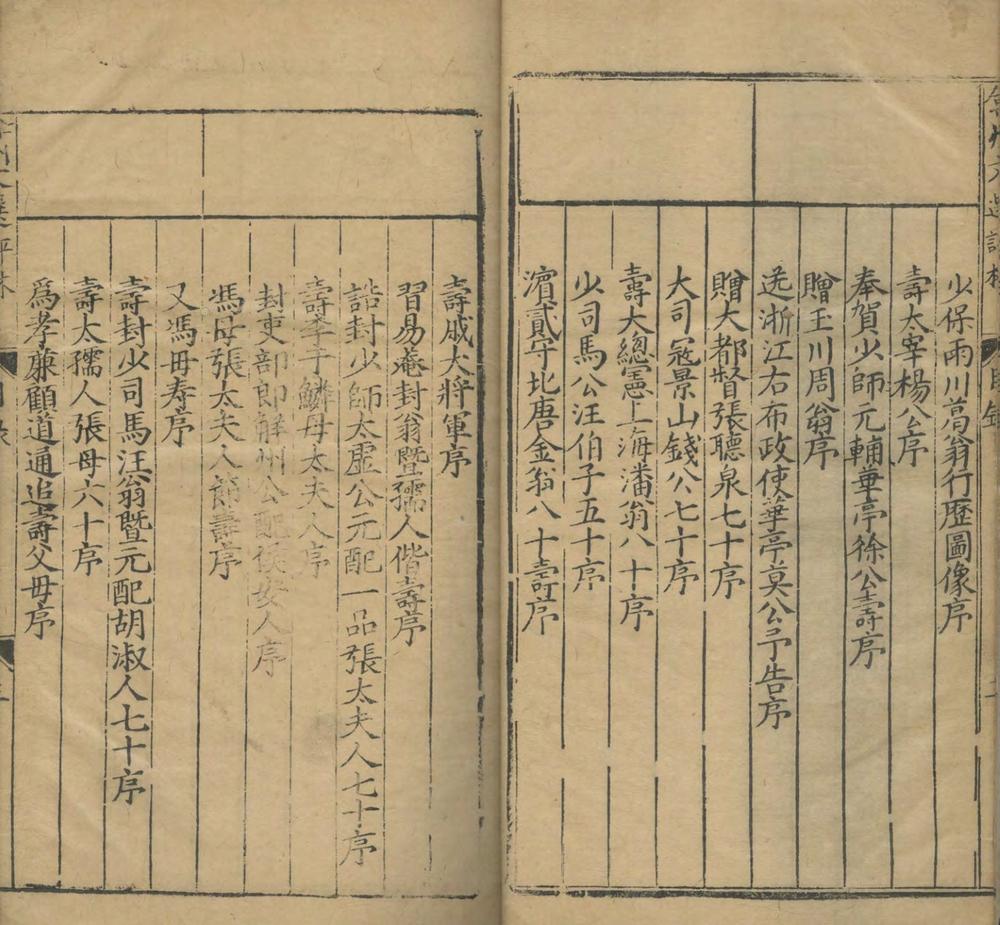 少保雨川葛翁行歷圖像序
壽太宰楊公序
奉賀少師元輔華亭徐公壽序
贈玉川周翁序
送浙江右布政使華亭莫公予告序
贈大都督張聽泉七十序
大司冦景山錢公七十序
壽大總憲上海潘翁八十序
少司馬公汪伯子五十序
濵貳守北唐金翁八十壽序
壽戚大將軍序
習易菴封翁暨孺人偕壽序
誥封少師太虛公元配一品張太夫人七十序
壽李于鱗母太夫人序
封吏部郎解州公配侯安人序
馮母張太夫人節壽序
又馮母寿序
壽封少司馬汪翁暨元配胡淑人七十序
壽太孺人張母六十序
爲孝廉顧道通追壽父母序